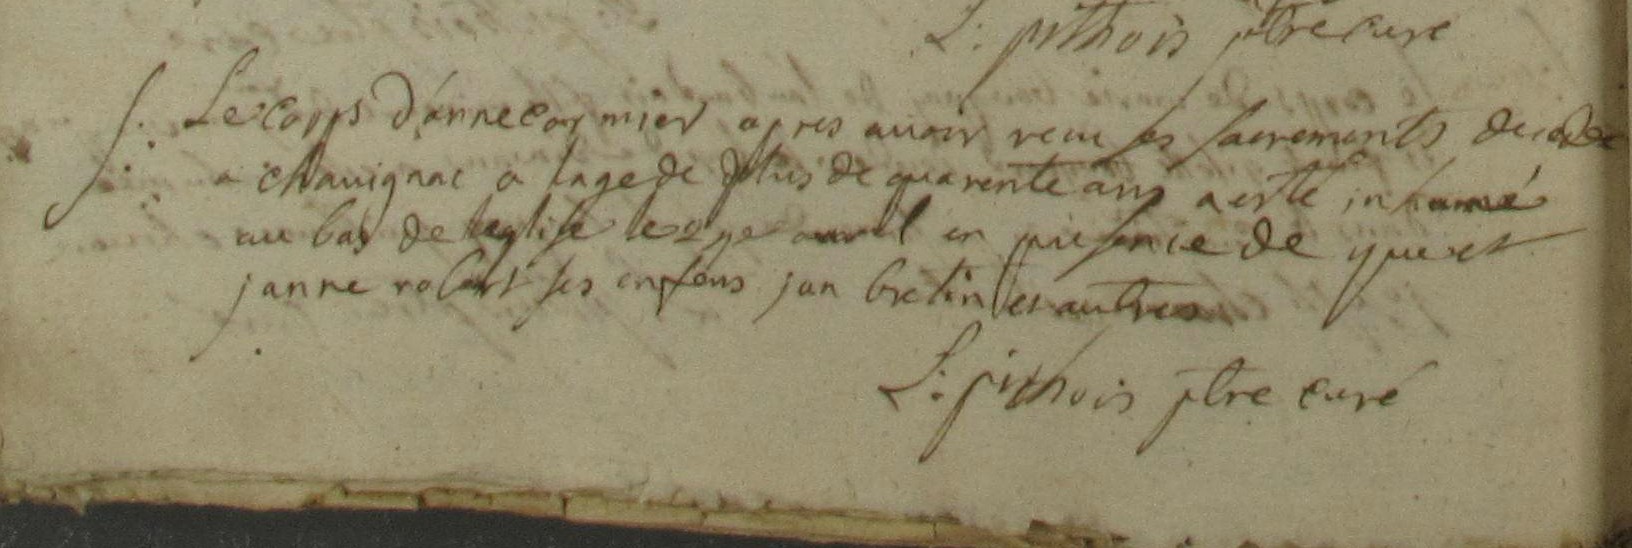 L: pithois ptre curé
S. Le corps d'anne cormier apres avoir receu les sacrements decedée
a chavignac a lage de plus de quarente ans a esté inhumé
au bas de leglise le avril en presence de et
janne ses enfens jan bretin et autres
L: pithois ptre curé